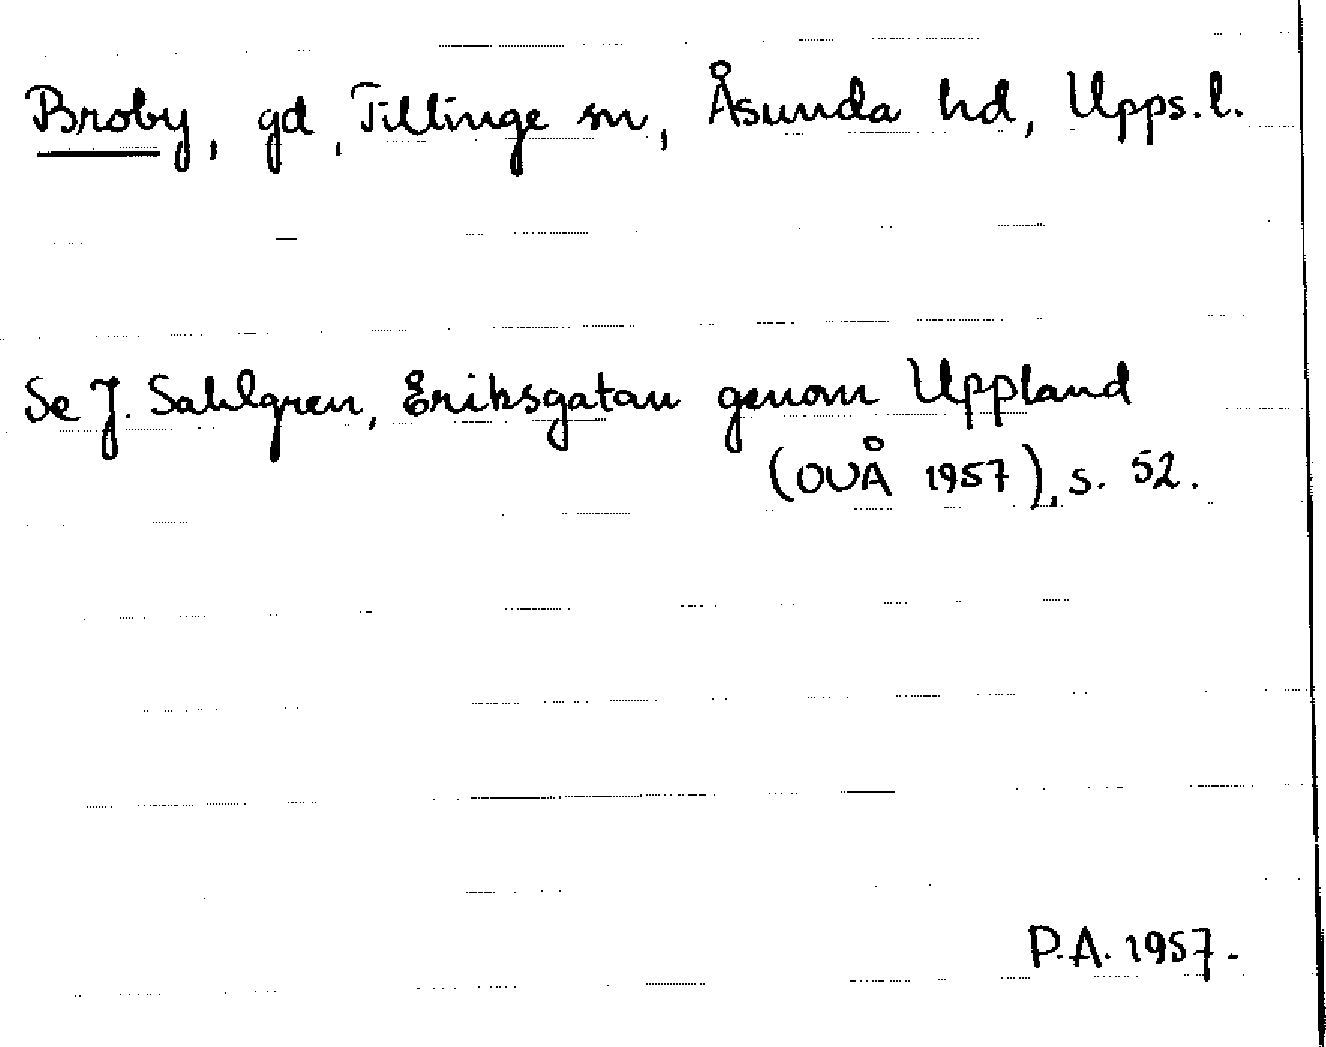 Broby, gd, Tillinge sn, Åsunda hd, Upps.l.
Se J. Sahlgren, Eriksgatan genom Uppland
(OUÅ 1957), s. 52.
P.A. 1957.